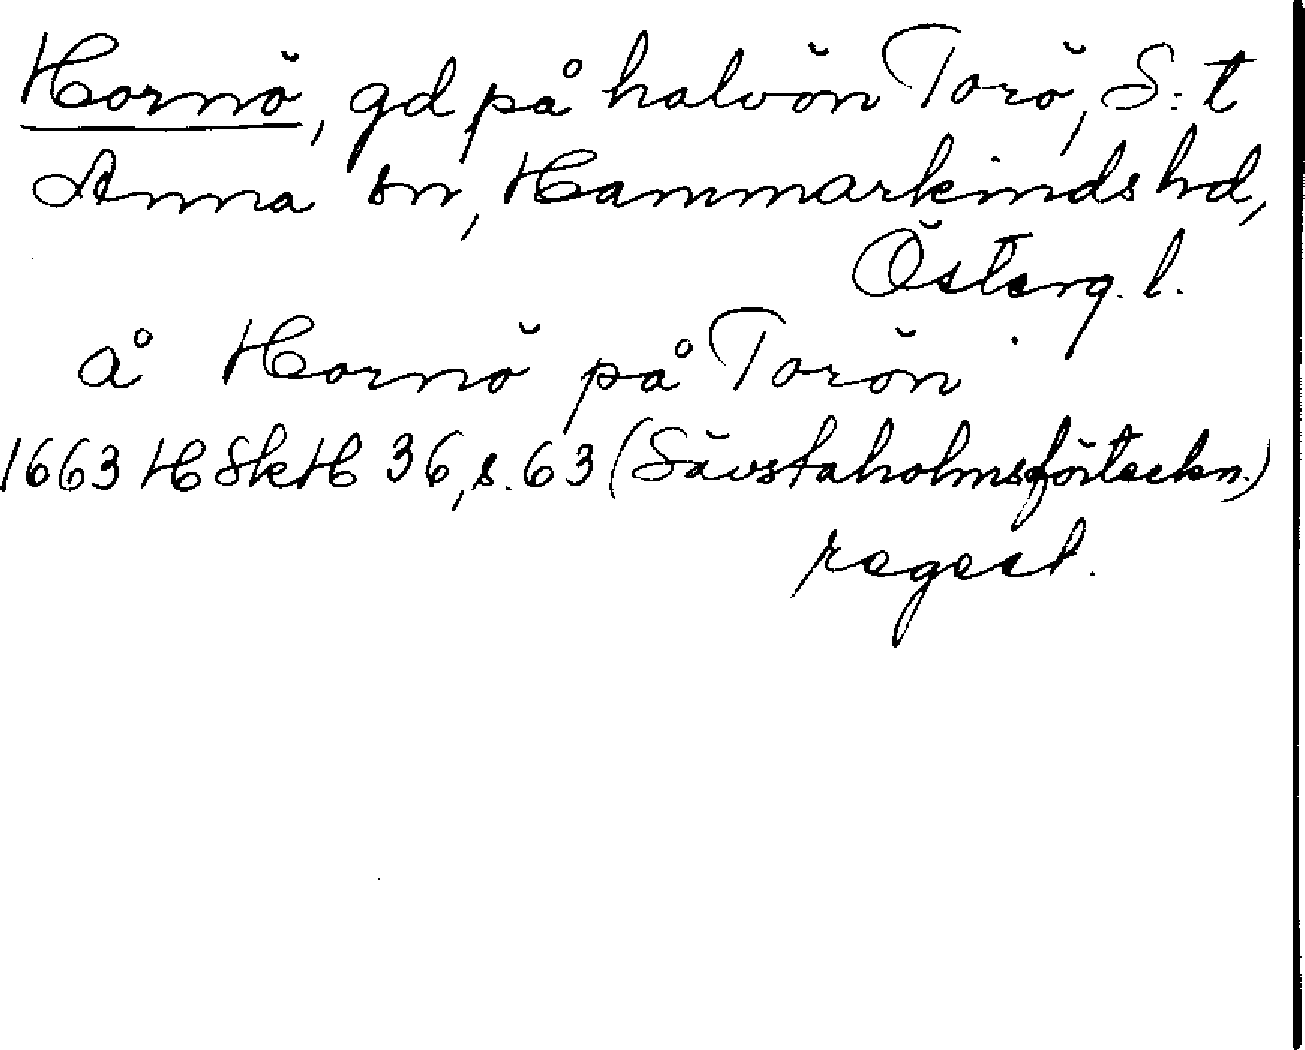 Hornö, gd på halvön Torö, S:t
Anna sn, Hammarkinds hd,
Österg. l.
å Hornö på Torön
1663 HSkH 36, s. 63 (Sävstaholmsförteckn.)
regest.